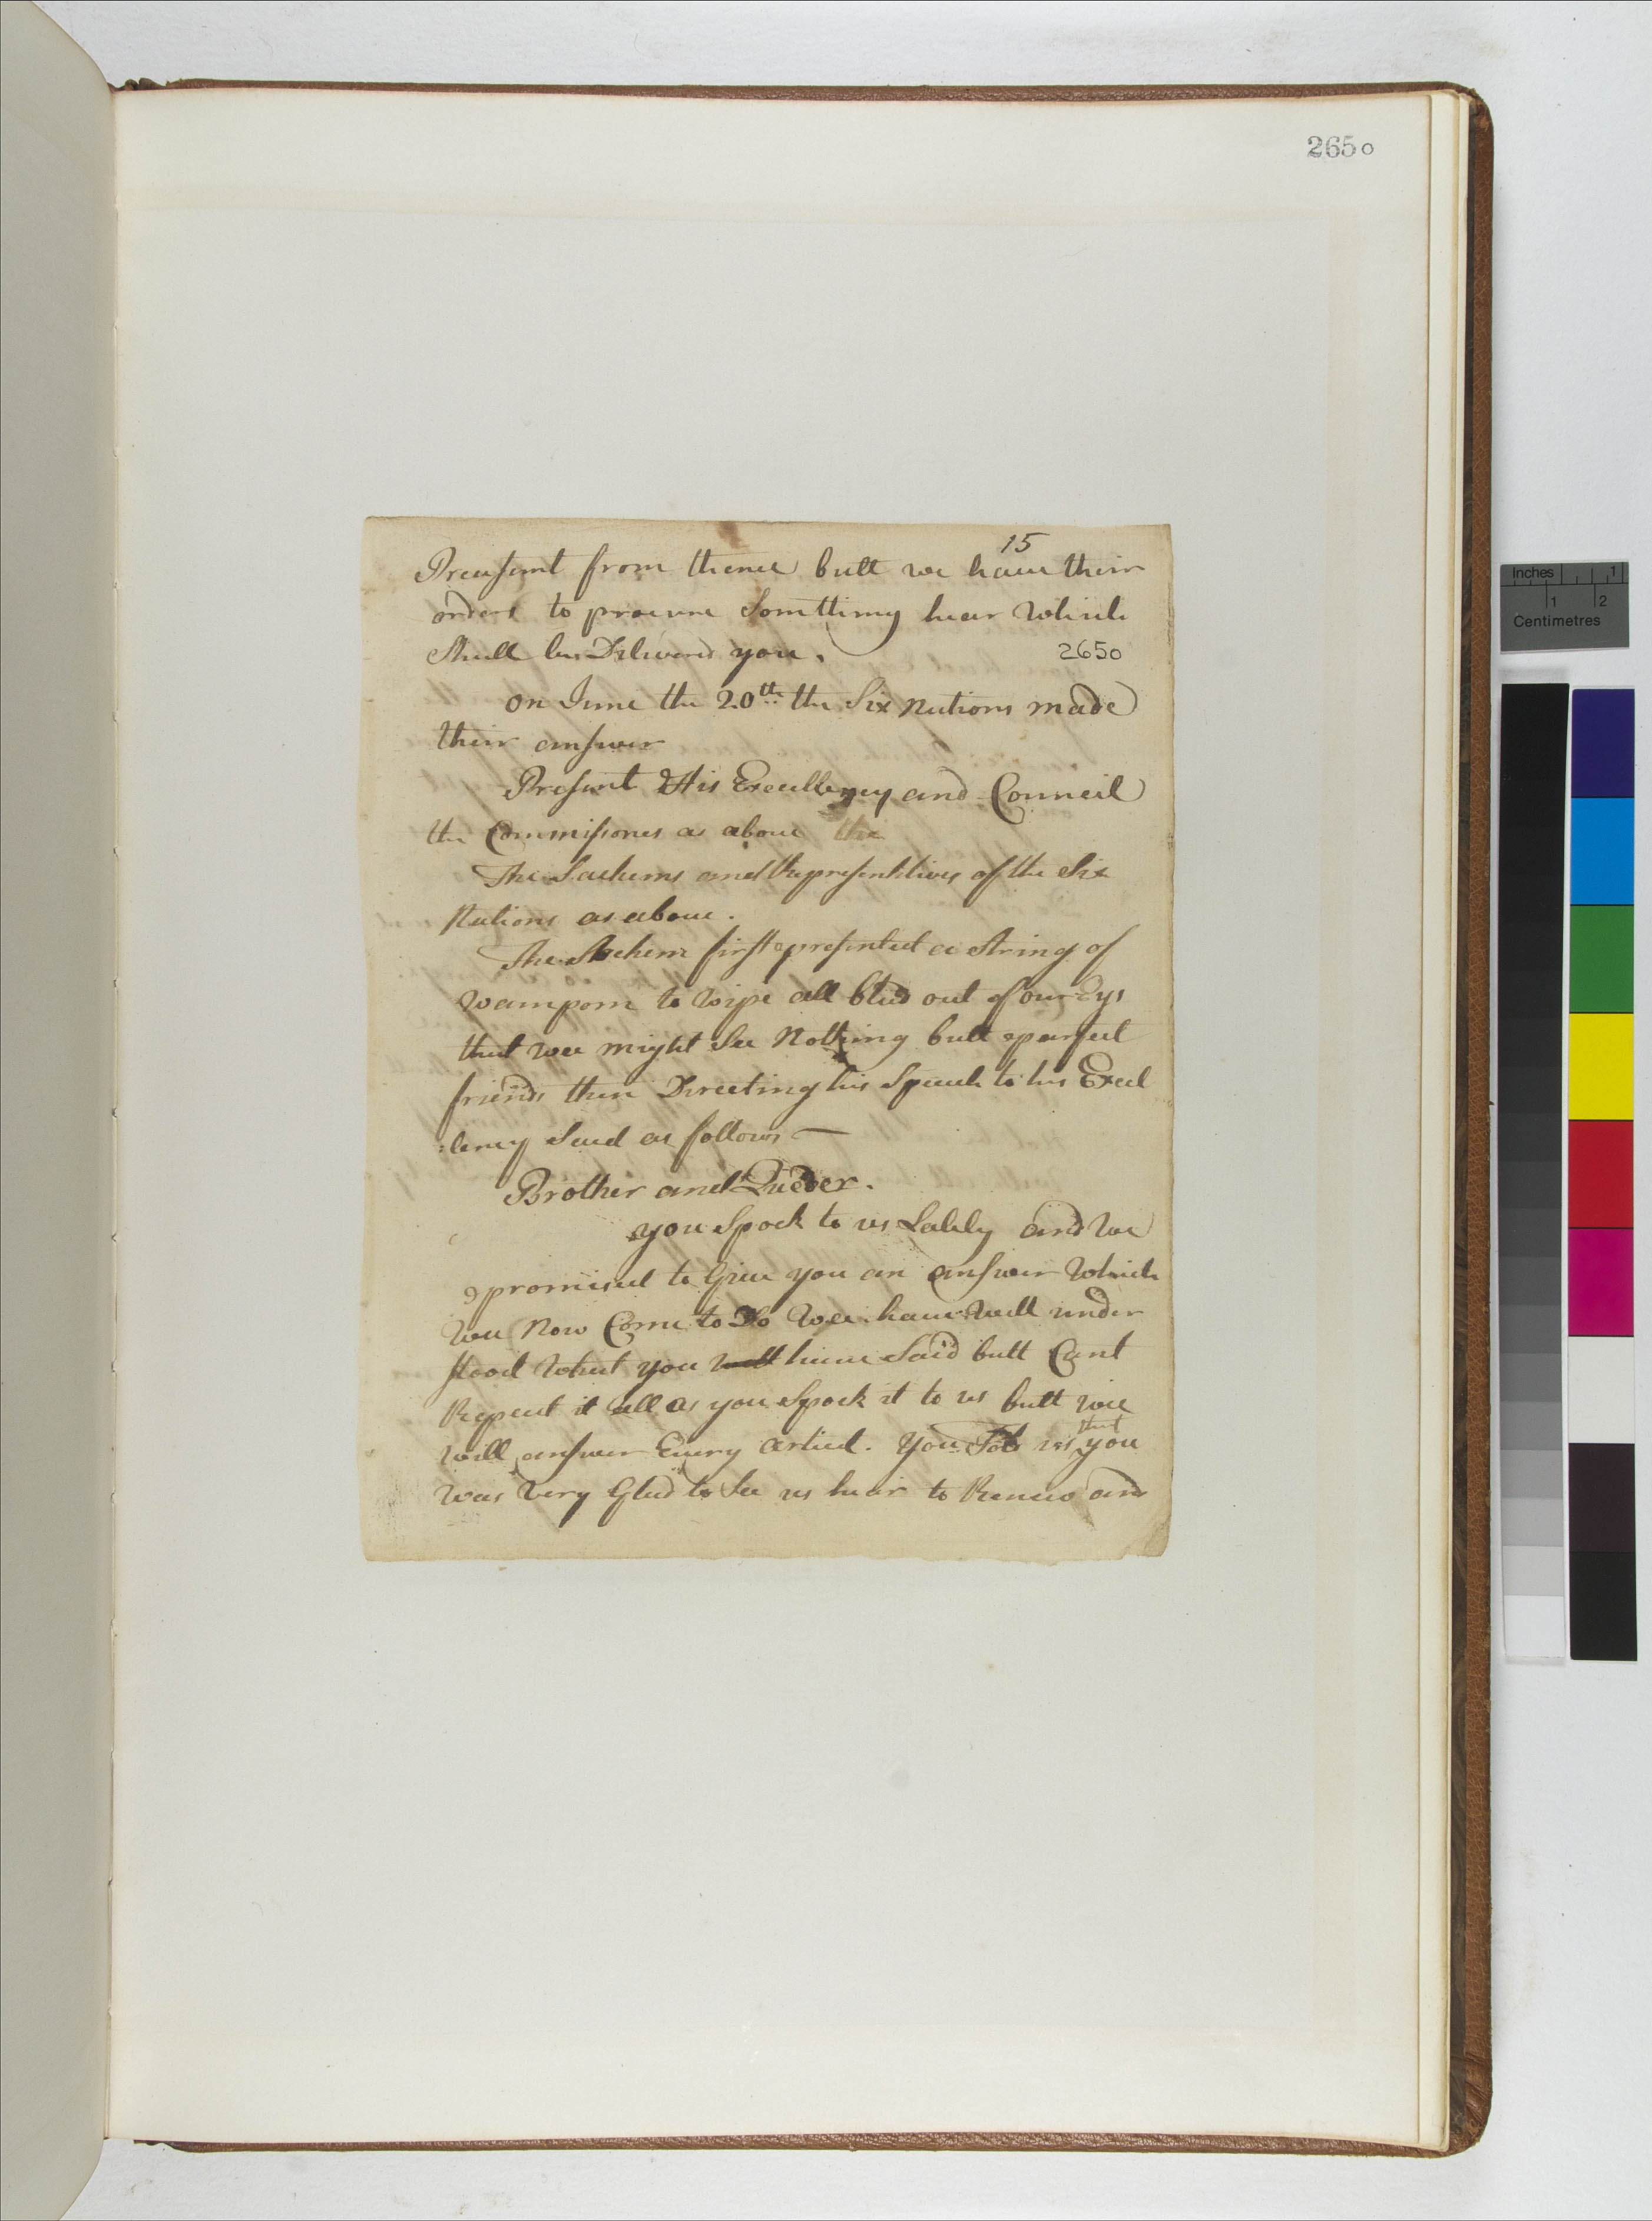 2650
15
Preasent from thence butt we haue their
orders to procure Somtthing hear Which
Shall be Delivered you.
2650
on June the 20th the Six Nations made
their answer
Present His Excellency and Council
the Commissiones as aboue the
The Sachems and Representitives of the Six
Nations as aboue.
The Sachem first presented a String of
Wampom to Wipe all blud out of our Eys
that wee might See Nothing butt parfect
friends then Directing his Speech to his Excel
:lency Said as follows —
Brother and Queder.
you Spock to us Lately and We
promised to Giue you an answer Which
Wee Now Come to Do Wee haue Well under
stood What you well haue Said butt Cant
Repeat it all as you Spock it to us butt wee
that
will answer Euery articel. You Told us you
Was Very Glad to See us hear to Renew and
Inches 1
1 2
Centimetres